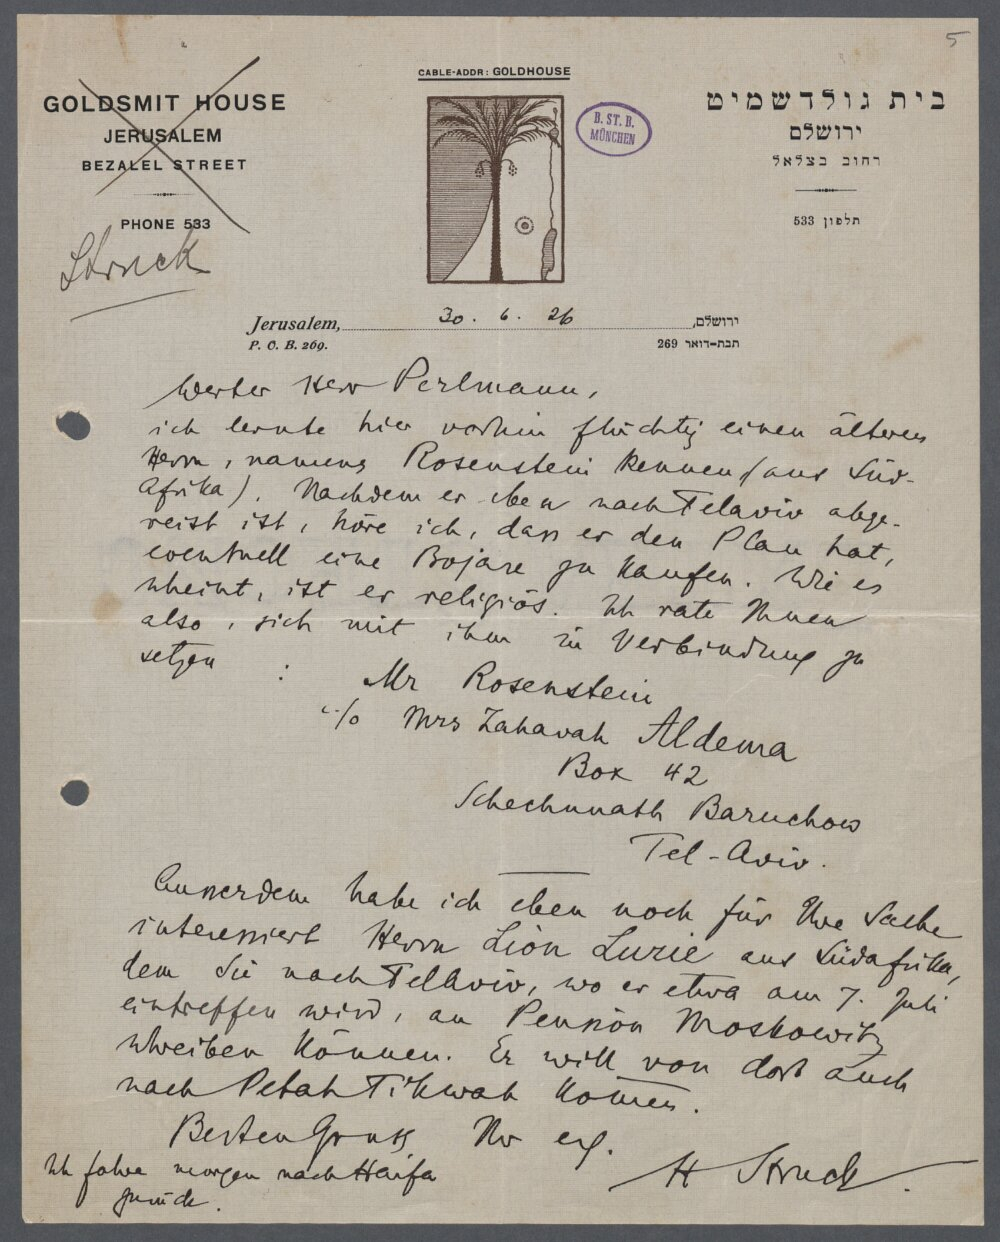 5
CABLE-ADDR: GOLDHOUSE
GOLDSMIT HOUSE
JERUSALEM
BEZALEL STREET
PHONE 533
Struck
B. ST. B.
MÜNCHEN
בית גולדשמיט
ירושלם
רחוב בצלאל
תלפון 533
Jerusalem, 30. 6. 26 ירושלם,
P. O. B. 269. תבת-דואר 269
Werter Herr Perlmann,
ich lernte hier vorhin flüchtig einen älteren
Herrn, namens Rosenstein kennen (aus Süd-
Afrika). Nachdem er eben nach Telaviv abge-
reist ist, höre ich, dass er den Plan hat,
eventuell eine Bojare zu kaufen. Wie es
scheint, ist er religiös. Ich rate Ihnen
also, sich mit ihm in Verbindung zu
setzen :
Mr Rosenstein
c/o Mrs Zahavah Aldema
Box 42
Schechunath Baruchow
Tel-Aviv.
Ausserdem habe ich eben noch für Ihre Sache
interessiert Herrn Lion Lurie aus Südafrika,
dem Sie nach Tellaviv, wo er etwa am 7. Juli
eintreffen wird, an Pension Moskowitz
schreiben können. Er will von dort auch
nach Petah Tikwah kommen.
Besten Gruss Ihr erg.
H Struck.
Ich fahre morgen nach Haifa
zurück.